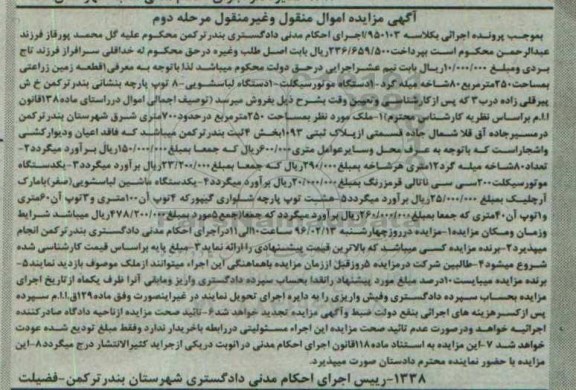 آگهی مزایده اموال منقول وغیرمنقول مرحله دوم
بموجب پرونده اجرائی بکلاسه ۹۵۰۱۰۳/اجرای احکام مدنی دادگستری بندرترکمن محکوم علیه گل محمد پورقاز فرزند
عبدالرحمن محکوم است بپرداخت ۲۳۶/۶۵۹/۵۰۰ریال بابت اصل طلب وغیره درحق محکوم له خداقلی سرافراز فرزند تاج
بردی ومبلغ ۱۰/۰۰۰/۰۰۰ریال بابت نیم عشراجرایی درحق دولت محکوم میباشد لذا باتوجه به معرفی ۱قطعه زمین زراعتی
بمساحت ۲۵۰مترمربع ۸۰شاخه میله گرد ۱دستگاه موتورسیکلت-۱دستگاه لباسشویی-۸ توپ پارچه بنشانی بندرترکمن خ ش
پیرقلی زاده درب ۳ که پس ازکارشناسی وتعیین وقت بشرح ذیل بفروش میرسد (توصیف اجمالی اموال درراستای ماده ۱۳۸قانون
ا.ا.م براساس نظریه کارشناس محترم)۱-ملک مورد نظر بمساحت ۲۵۰مترمربع درحدود ۷۰۰متری شرق شهرستان بندرترکمن
درمسیرجاده آق قلا شمال جاده قسمتی ازپلاک ثبتی ۱۰۹۳بخش ۴ثبت بندرترکمن میباشد که فاقد اعیان ودیوارکشی
واشجاراست که باتوجه به عرف محل وسایرعوامل متری ۶۰۰/۰۰۰ریال که جمعا بمبلغ ۱۵۰/۰۰۰/۰۰۰ریال برآورد میگردد۲-
تعداد ۸۰شاخه میله گرد ۱۲متری هرشاخه بمبلغ ۲۹۰/۰۰۰ریال که جمعا بمبلغ ۲۳/۲۰۰/۰۰۰ریال برآورد میگردد۳-یکدستگاه
موتورسیکلت ۲۰۰سی سی ناتالی قرمزرنگ بمبلغ ۲۰/۰۰۰/۰۰۰ریال برآورد میگردد۴-یکدستگاه ماشین لباسشویی(صفر)بامارک
آرچلیک بمبلغ ۲۵/۰۰۰/۰۰۰ریال برآورد میگردد۵-هشت توپ پارچه شلواری گیپورکه ۴توپ آن ۱۰۰متری و۳توپ آن ۶۰متری
و۱توپ آن ۴۰متری که جمعا بمبلغ ۲۶۰/۰۰۰/۰۰۰ریال برآورد میگردد که جمعا(جمع ۵مورد بمبلغ ۴۷۸/۲۰۰/۰۰۰ریال میباشد شرایط
وزمان ومکان مزایده)۱-مزایده درروزچهارشنبه ۹۶/۰۲/۱۳ ساعت ۱۰الی ۱۱دراجرای احکام مدنی دادگستری بندرترکمن انجام
میپذیرد۲-برنده مزایده کسی میباشدکه بالاترین قیمت پیشنهادی را ارائه نماید۳-مبلغ پایه براساس قیمت کارشناسی شده
شروع میشود۴-طالبین شرکت درمزایده ۵روزقبل اززمان مزایده باهماهنگی این اجراء میتوانند ازملک موصوف بازدید نمایند۵-
برنده مزایده میبایست ۱۰درصد مبلغ مورد پیشنهاد رانقدا بحساب سپرده دادگستری واریز ومابقی آنرا ظرف یکماه ازتاریخ اجرای
مزایده بحساب سپرده دادگستری وفیش واریزی را به دایره اجرای تحویل نمایند در غیراینصورت وفق ماده ۱۲۹ق.ا.ا.م سپرده
پس ازکسرهزینه های اجرائی بنفع دولت ضبط وآگهی مزایده تجدید خواهد شد۶-تائید صحت مزایده ازناحیه دادگاه صادرکننده
اجرائیه خواهد ودرصورت عدم تائید صحت مزایده این اجراء مسئولیتی دررابطه باخریدار ندارد وفقط مبلغ تودیع شده عودت
خواهد شد ۷-این مزایده به استناد ماده ۱۱۸قانون اجرای احکام مدنی درانوبت دریکی ازجراید کثیرالانتشار درج میگردد۸-این
مزایده با حضور نماینده محترم دادستان صورت میپذیرد.
۱۳۳۸-رییس اجرای احکام مدنی دادگستری شهرستان بندرترکمن-فضیلت